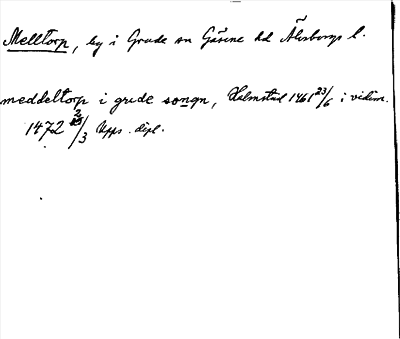 Melltorp, by i Grude sn Gäsene hd Älvsborgs l.
meddeltorp i grude songn, Halmstad 1461 23/6 i vidim.
1472 2/3 Upps. dipl.